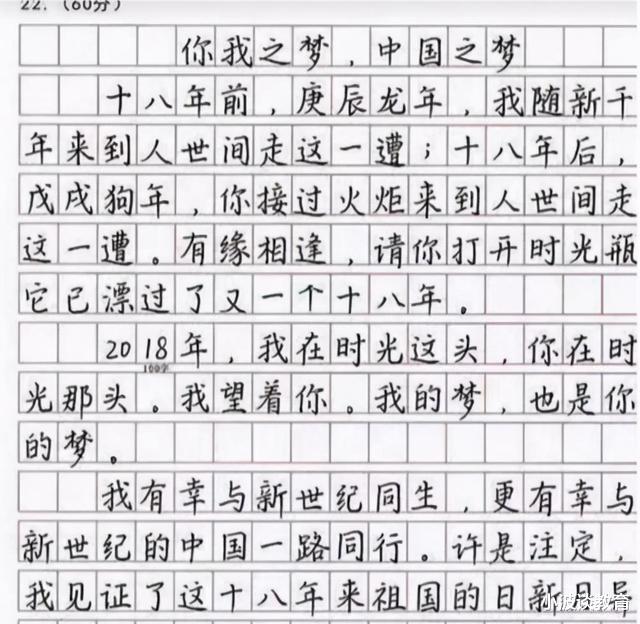 22.（60分）
你我之梦，中国之梦
十八年前，庚辰龙年，我随新千
年来到人世间走这一遭；十八年后，
戊戌狗年，你接过火炬来到人世间走
这一遭。有缘相逢，请你打开时光瓶
它已漂过了又一个十八年。
2018年，我在时光这头，你在时
100字
光那头。我望着你。我的梦，也是你
的梦。
我有幸与新世纪同生，更有幸与
新世纪的中国一路同行。许是注定，
我见证了这十八年来祖国的日新月异
小波谈教育